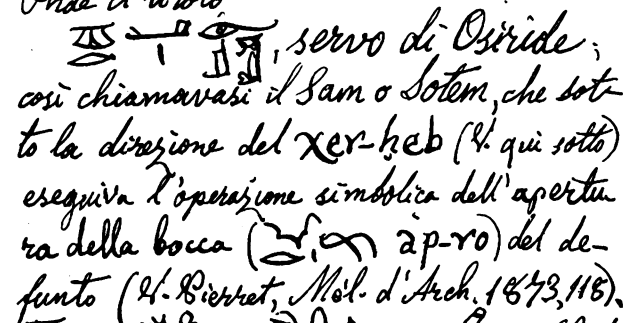 , servo di Osiride;
così chiamavasi il Sam o Sotem, che sot-
to la direzione del χer-ḥeb (V. qui sotto)
eseguiva l'operazione simbolica dell'apertu
ra della bocca ( àp-ro) del de-
funto (V. Pierret, Mél. d'Arch. 1873, 118).